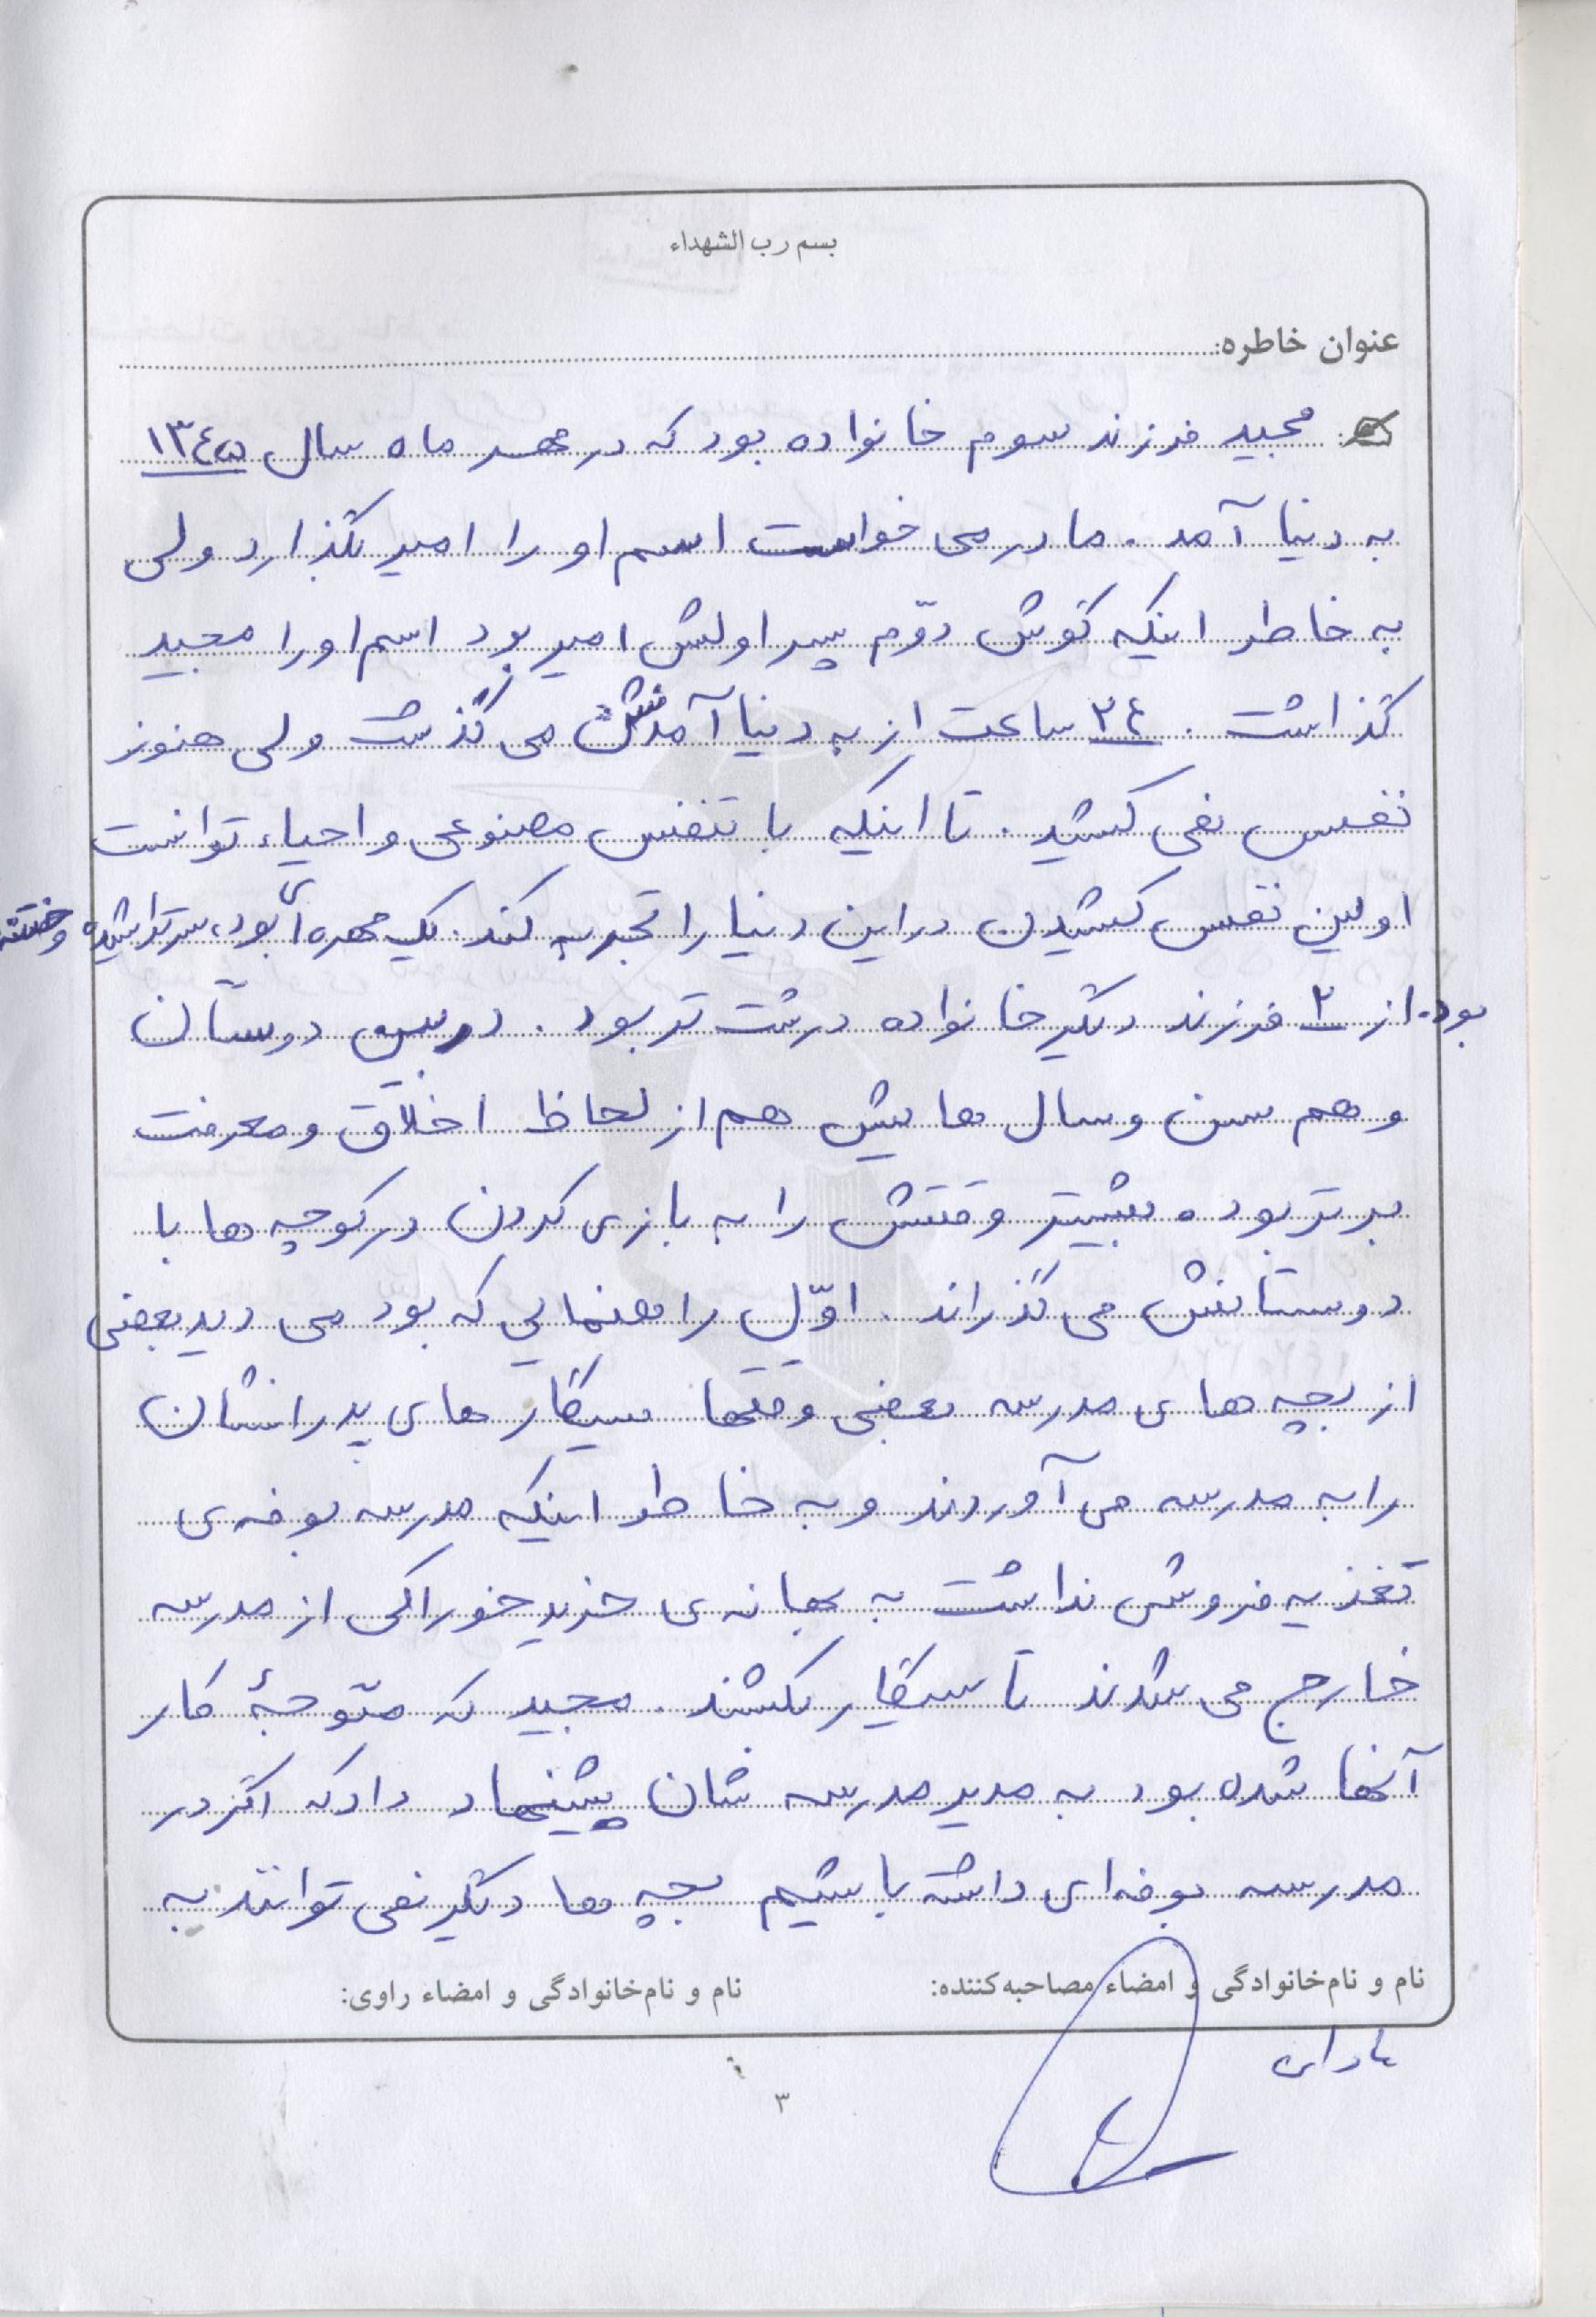 بسم رب الشهداء
عنوان خاطره:
مجید فرزند سوم خانواده بود که در مهر ماه سال ۱۳۴۵
به دنیا آمد. مادر می خواست اسم او را امیر بگذارد ولی
به خاطر اینکه گوش دوّم پسر اولش امیر بود اسم او را مجید
گذاشت. ۲۴ ساعت از به دنیا آمدنش می گذشت ولی هنوز
نفس نمی کشید. تا اینکه با تنفس مصنوعی و احیاء توانست
اولین نفس کشیدن در این دنیا را تجربه کند. یک مهره ای بود، سر تراشیده و ختنه
بود. از ۲ فرزند دیگر خانواده درشت تر بود. در بین دوستان
و هم سن و سال هایش هم از لحاظ اخلاق و معرفت
برتر بود. بیشتر وقتش را به بازی کردن در کوچه ها با
دوستانش می گذراند. اوّل راهنمایی که بود می دید بعضی
از بچه های مدرسه بعضی وقتها سیگار های پدرانشان
را به مدرسه می آوردند و به خاطر اینکه مدرسه بوفه ی
تغذیه فروشی نداشت به بهانه ی خرید خوراکی از مدرسه
خارج می شدند تا سیگار بکشند. مجید که متوجهٔ کار
آنها شده بود به مدیر مدرسه شان پیشنهاد داد که اگر در
مدرسه بوفه ای داشته باشیم بچه ها دیگر نمی توانند به
نام و نام‌خانوادگی و امضاء مصاحبه‌کننده:
نام و نام‌خانوادگی و امضاء راوی:
۳